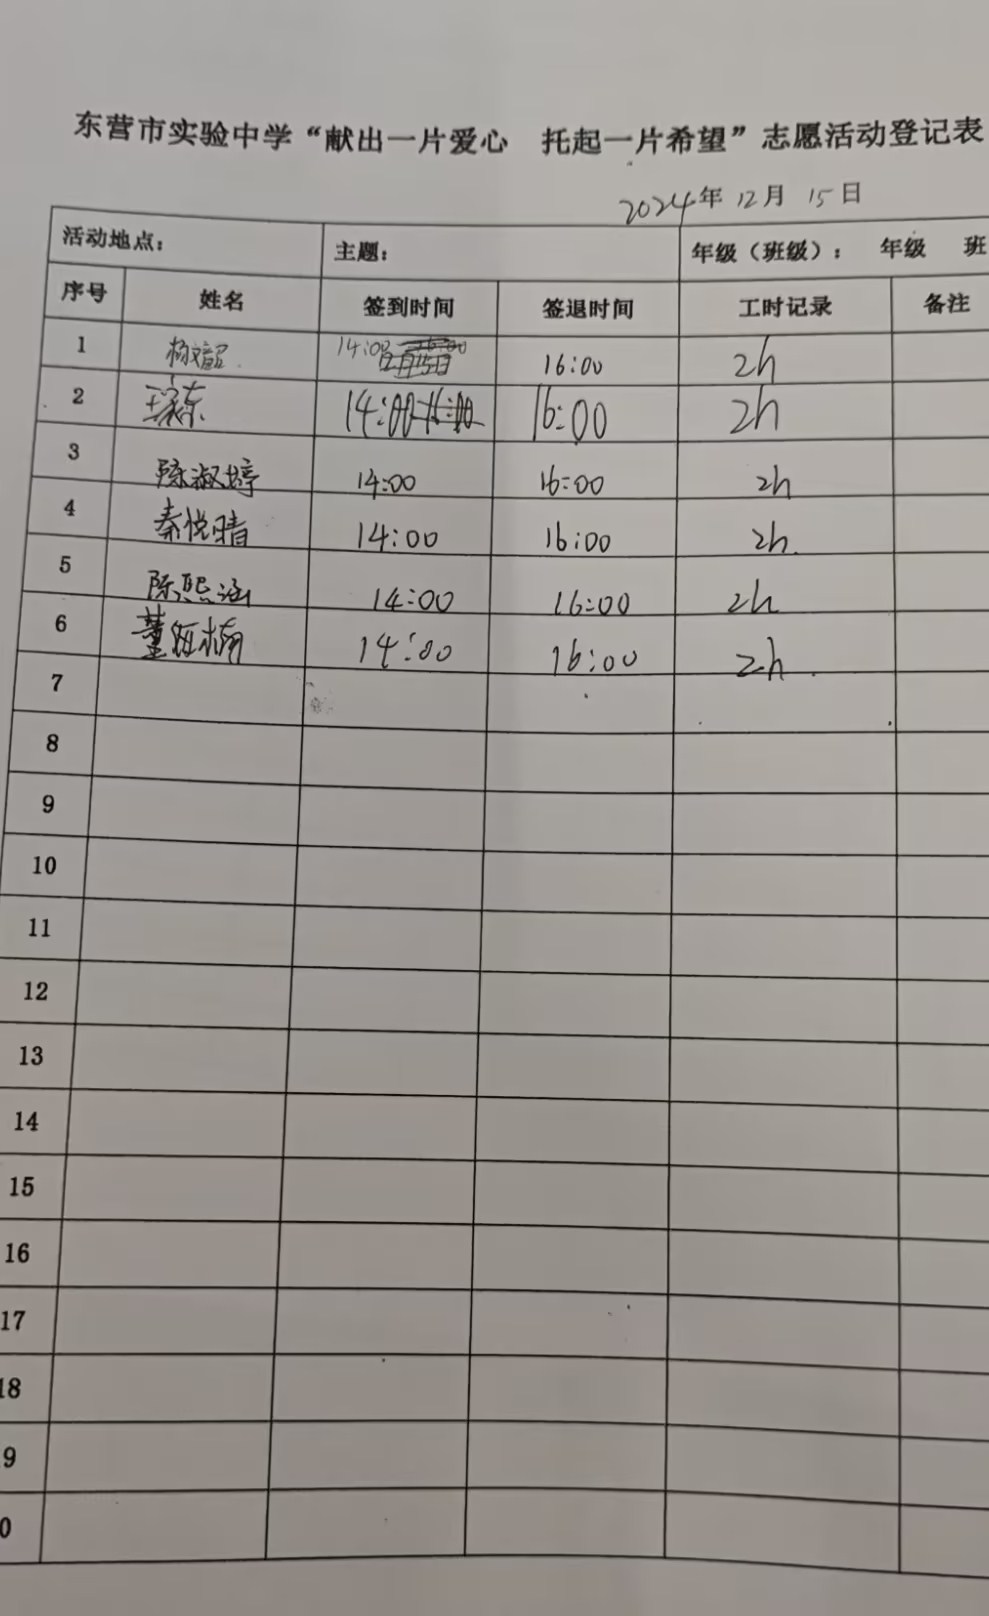 东营市实验中学“献出一片爱心 托起一片希望”志愿活动登记表
2024年 12月 15日
活动地点: 主题: 年级（班级）: 年级 班
序号 姓名 签到时间 签退时间 工时记录 备注
1 杨文韶 14:00 12月15日 16:00 2h
2 14:00 16:00 2h
3 陈淑婷 14:00 16:00 2h
4 秦悦晴 14:00 16:00 2h.
5 陈熙涵 14:00 16:00 2h
6 董 楠 14:00 16:00 2h.
7
8
9
10
11
12
13
14
15
16
17
18
9
0